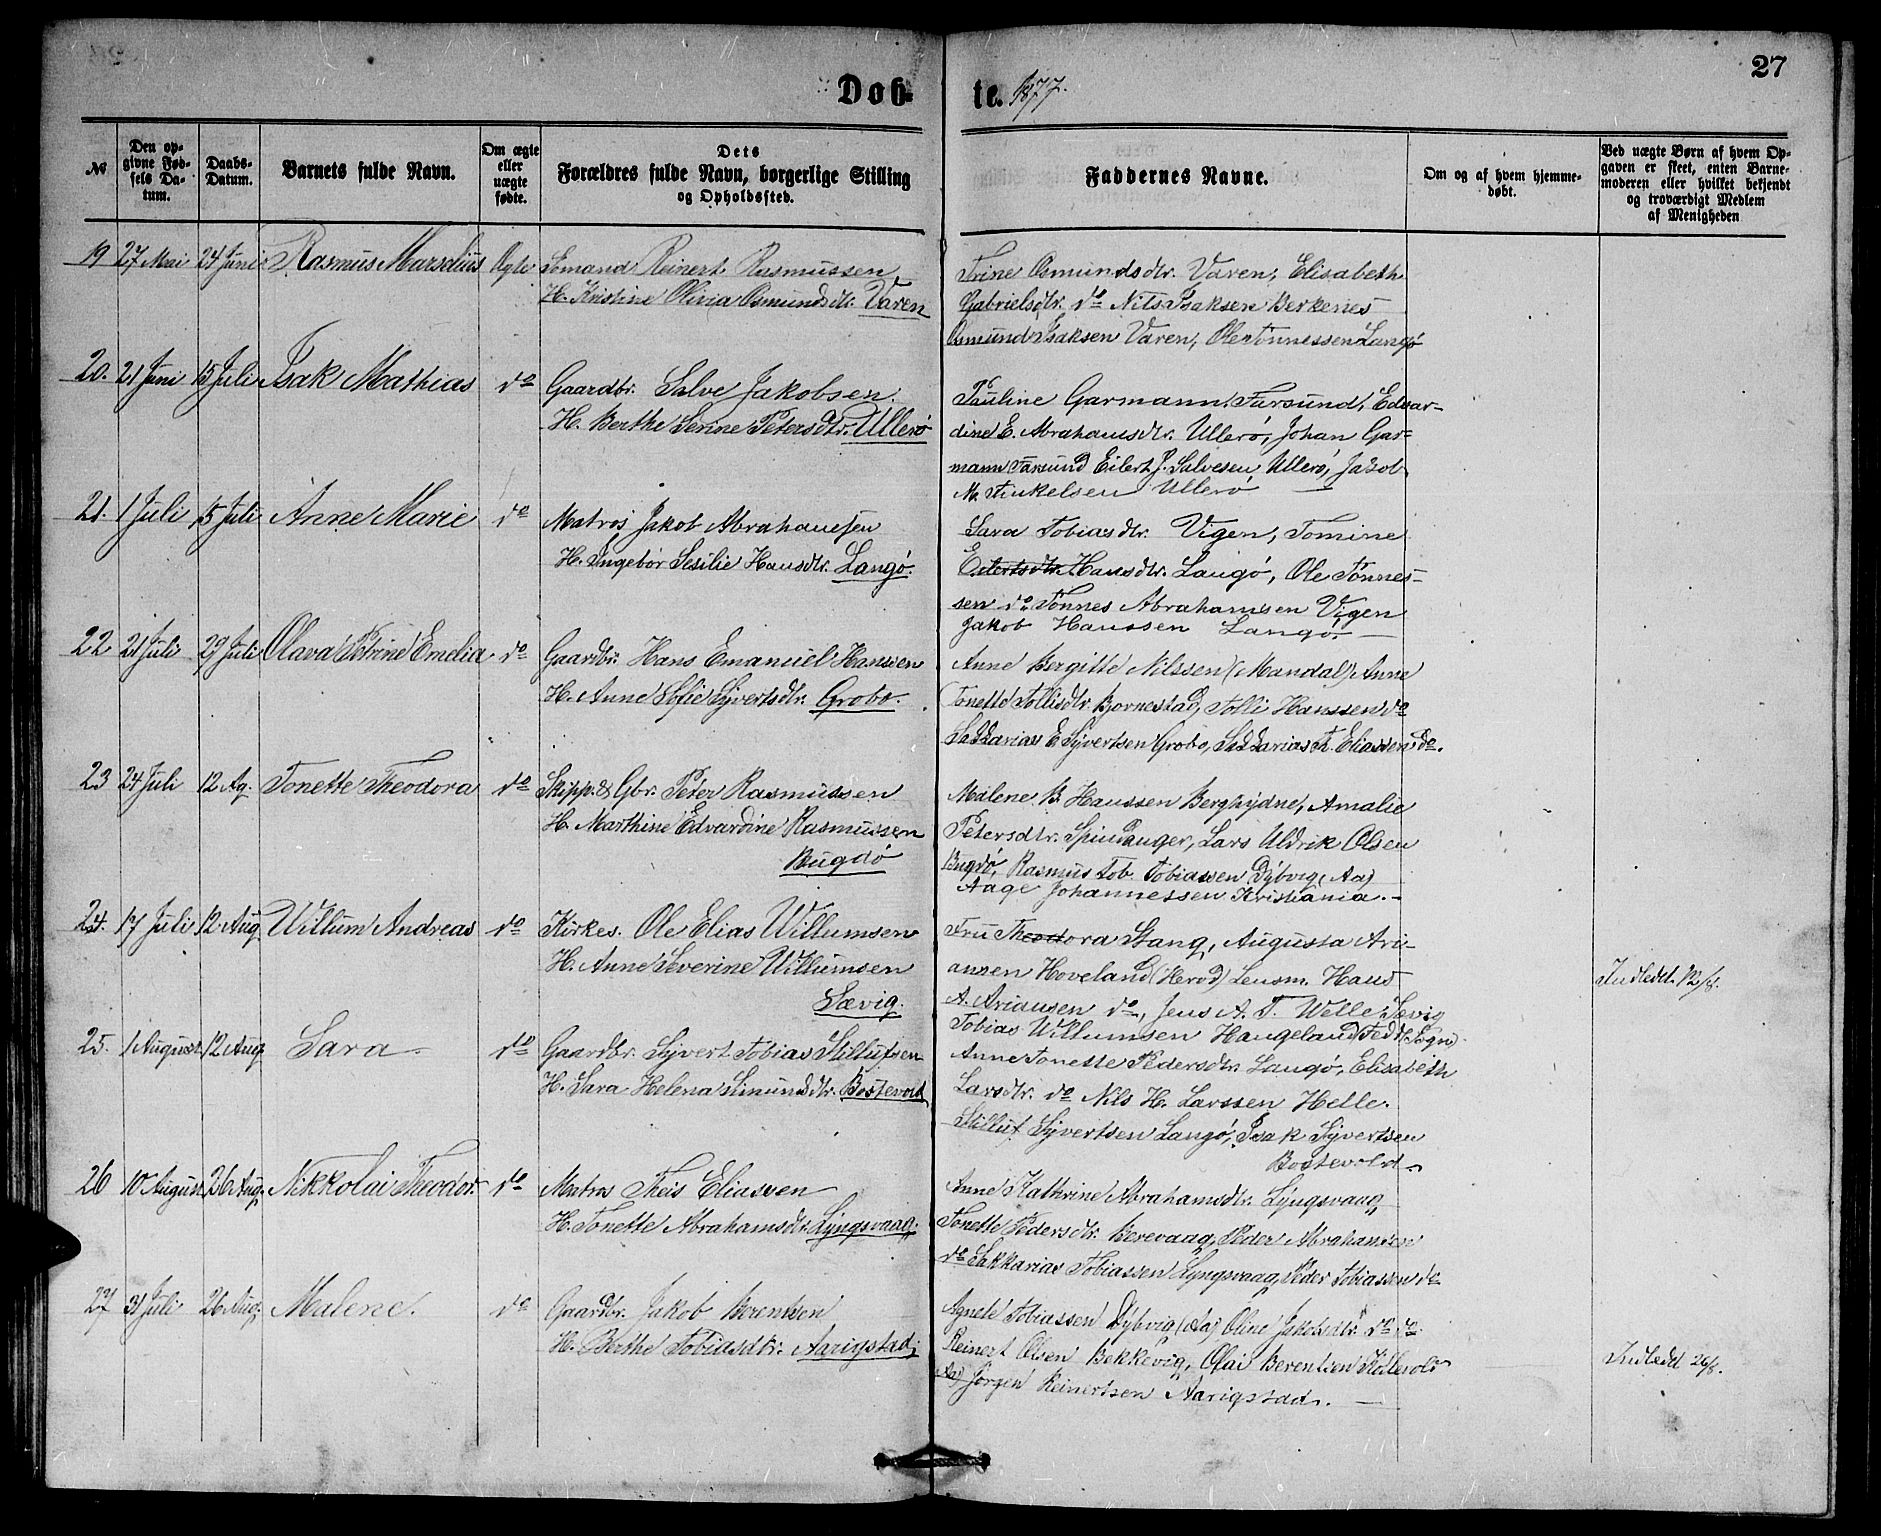 27
Døbte. 1877.
№
Den opgivne Fødsels Datum.
Daabs-Datum.
Barnets fulde Navn.
Om ægte eller uægte fødte.
Dets Forældres fulde Navn, borgerlige Stilling og Opholdssted.
Faddernes Navne.
Om og af hvem hjemmedøbt.
Ved uægte Børn af hvem Opgaven er skeet, enten Barnemoderen eller hvilket bekjendt og troværdigt Medlem af Menigheden
19 27 Mai 24 Juni Rasmus Marselius Ægte Sømand Reinert Rasmussen
H. Kristine Olivia Osmundsdtr. Varen
Trine Osmundsdtr. Varen, Elisabeth
Gabrielsdtr. do Nils Isaksen Berkenes
Osmund Isaksen Varen, Ole Tønnessen Langø
20. 21 Juni 15 Juli Isak Mathias do Gaardbr. Salve Jakobsen
H. Berthe Serine Petersdtr. Ullerø
Pauline Garmann, Farsund, Edvar-
dine E. Abrahamsdtr. Ullerø, Johan Gar-
mann Farsund Eilert J. Salvesen Ullerø, Jakob
M. Tinkelsen Ullerø
21. 1 Juli 15 Juli Anne Marie do Matros Jakob Abrahamsen
H. Ingebor Sesilie Hansdtr. Langø.
Sara Tobiasdtr. Vigen, Tomine
Eilertsdtr. Hansdtr. Langø, Ole Tønnes-
sen do Tønnes Abrahamsen Vigen
Jakob Hanssen Langø.
22 21 Juli 29 Juli Olava Petrine Emelia do Gaardbr. Hans Emanuel Hansen
H. Anne Sofie Syvertsdtr. Grobo.
Anne Bergitte Nilssen (Mandal) Anne
Tonette Tollisdtr. Bjornestad, Tolli Hanssen do
Sakkarias E Syvertsen Grobo, Sakkarias T. Eliassen do.
23 24 Juli 12 Ag. Tonette Theodora do Skipp. & Gbr. Peter Rasmussen
H. Marthine Edvardine Rasmussen
Bugdø
Malene B. Hanssen Berghydne, Amalie
Petersdtr. Spindanger, Lars Uldrik Olsen
Bugdø, Rasmus Tob. Tobiassen Dybvig, (Aa)
Aage Johannessen Kristiania.
24. 17 Juli 12 Aug Willum Andreas do Kirkes. Ole Elias Willumsen
H. Anne Severine Willumsen
Sævig.
Fru Theodora Stang, Augusta Ari-
ansen Hoveland (Herød) Lensm. Hans
A. Ariansen do, Jens A. T. Welle Sævig
Tobias Willumsen Haugeland Fedde (Sogn)
Indledd. 12/8.
25. 1 August 12 Aug Sara do Gaardbr. Syvert Tobias Stillufsen
H. Sara Helena Simundsdtr. Bostevold
Anne Tonette Pedersdtr. Langø, Elisabeth
Larsdtr. do Nils H. Larssen Helle.
Stilluf Syvertsen Langø, Isak Syvertsen
Bostevold.
26 10 August 26 Aug. Nikkolai Theodor do Matros Theis Eliassen
H. Tonette Abrahamsdtr. Lyngsvaag.
Anne Kathrine Abrahamsdtr. Lyngsvaag
Tonette Pedersdtr. Berevaag, Peder Abrahamsen
do Sakkarias Tobiassen Lyngsvaag, Peder Tobiassen do
27 31 Juli 26 Aug. Malene. do Gaardbr. Jakob Berentsen
H. Berthe Tobiasdtr. Aarigstad.
Agnete Tobiassen Dybvig (Aa) Oline Jakobsdtr. do do.
Reinert Olsen Bekkevig, Olai Berentsen Kollevold
(Aa) Jørgen Reinertsen Aarigstad.
Indledd 26/8.